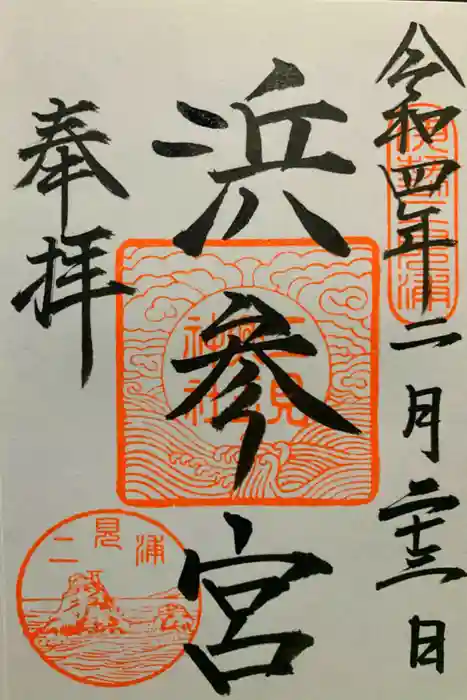 令和四年二月二十三日
浜参宮
奉拝
二見興玉神社
二見浦